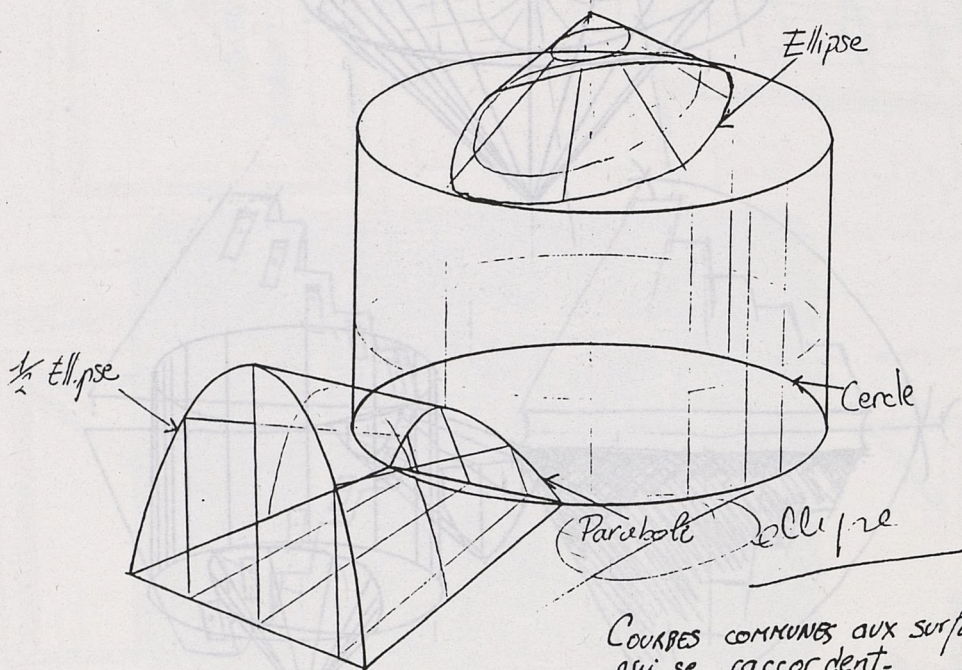 Ellipse
½ Ellipse
Cercle
Parabole
ellipse
COURBES COMMUNES aux surfa
qui se raccordent-